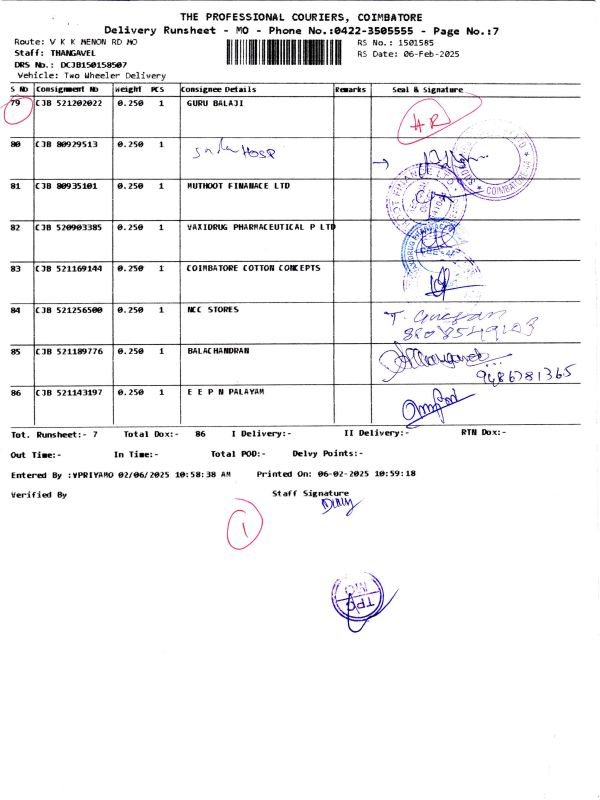 THE PROFESSIONAL COURIERS, COIMBATORE
Delivery Runsheet - MO - Phone No.:0422-3505555 - Page No.:7
Route: V K K MENON RD MO RS No.: 1501585
Staff: THANGAVEL RS Date: 06-Feb-2025
DRS No.: DCJB150158507
Vehicle: Two Wheeler Delivery
S No Consignment No Weight PCS Consignee Details Remarks Seal & Signature
79 CJB 521202022 0.250 1 GURU BALAJI
80 CJB 80929513 0.250 1 HOSP
81 CJB 80935101 0.250 1 MUTHOOT FINANACE LTD
82 CJB 520903385 0.250 1 VAXIDRUG PHARMACEUTICAL P LTD
83 CJB 521169144 0.250 1 COIMBATORE COTTON CONCEPTS
84 CJB 521256500 0.250 1 NCC STORES
85 CJB 521189776 0.250 1 BALACHANDRAN 9486781365
86 CJB 521143197 0.250 1 E E P N PALAYAM
Tot. Runsheet:- 7 Total Dox:- 86 I Delivery:- II Delivery:- RTN Dox:-
Out Time:- In Time:- Total POD:- Delvy Points:-
Entered By :VPRIYAMO 02/06/2025 10:58:38 AM Printed On: 06-02-2025 10:59:18
Verified By Staff Signature
1
TPC
MO